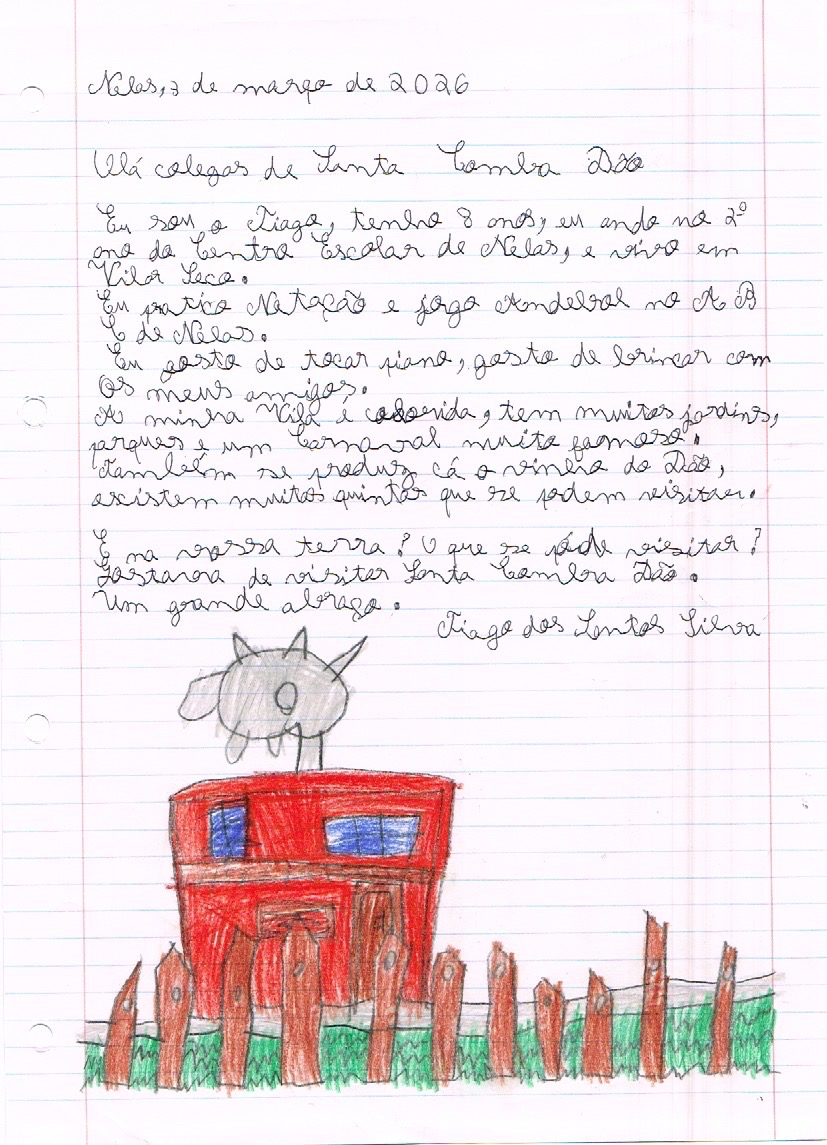 Nelas, 3 de março de 2026
Olá colegas de Santa Comba Dão
Eu sou o Tiago, tenho 8 anos, eu ando no 2º
ano do Centro Escolar de Nelas, e vivo em
Vilar Seco.
Eu pratico Natação e jogo Andebol no A B
C de Nelas.
Eu gosto de tocar piano, gosto de brincar com
os meus amigos.
A minha Vila é colorida, tem muitos jardins,
parques e um Carnaval muito famoso.
Também se produz cá o vinho do Dão,
existem muitas quintas que se podem visitar.
E na vossa terra? O que se póde visitar?
Gostava de visitar Santa Comba Dão.
Um grande abraço.
Tiago dos Santos Silva